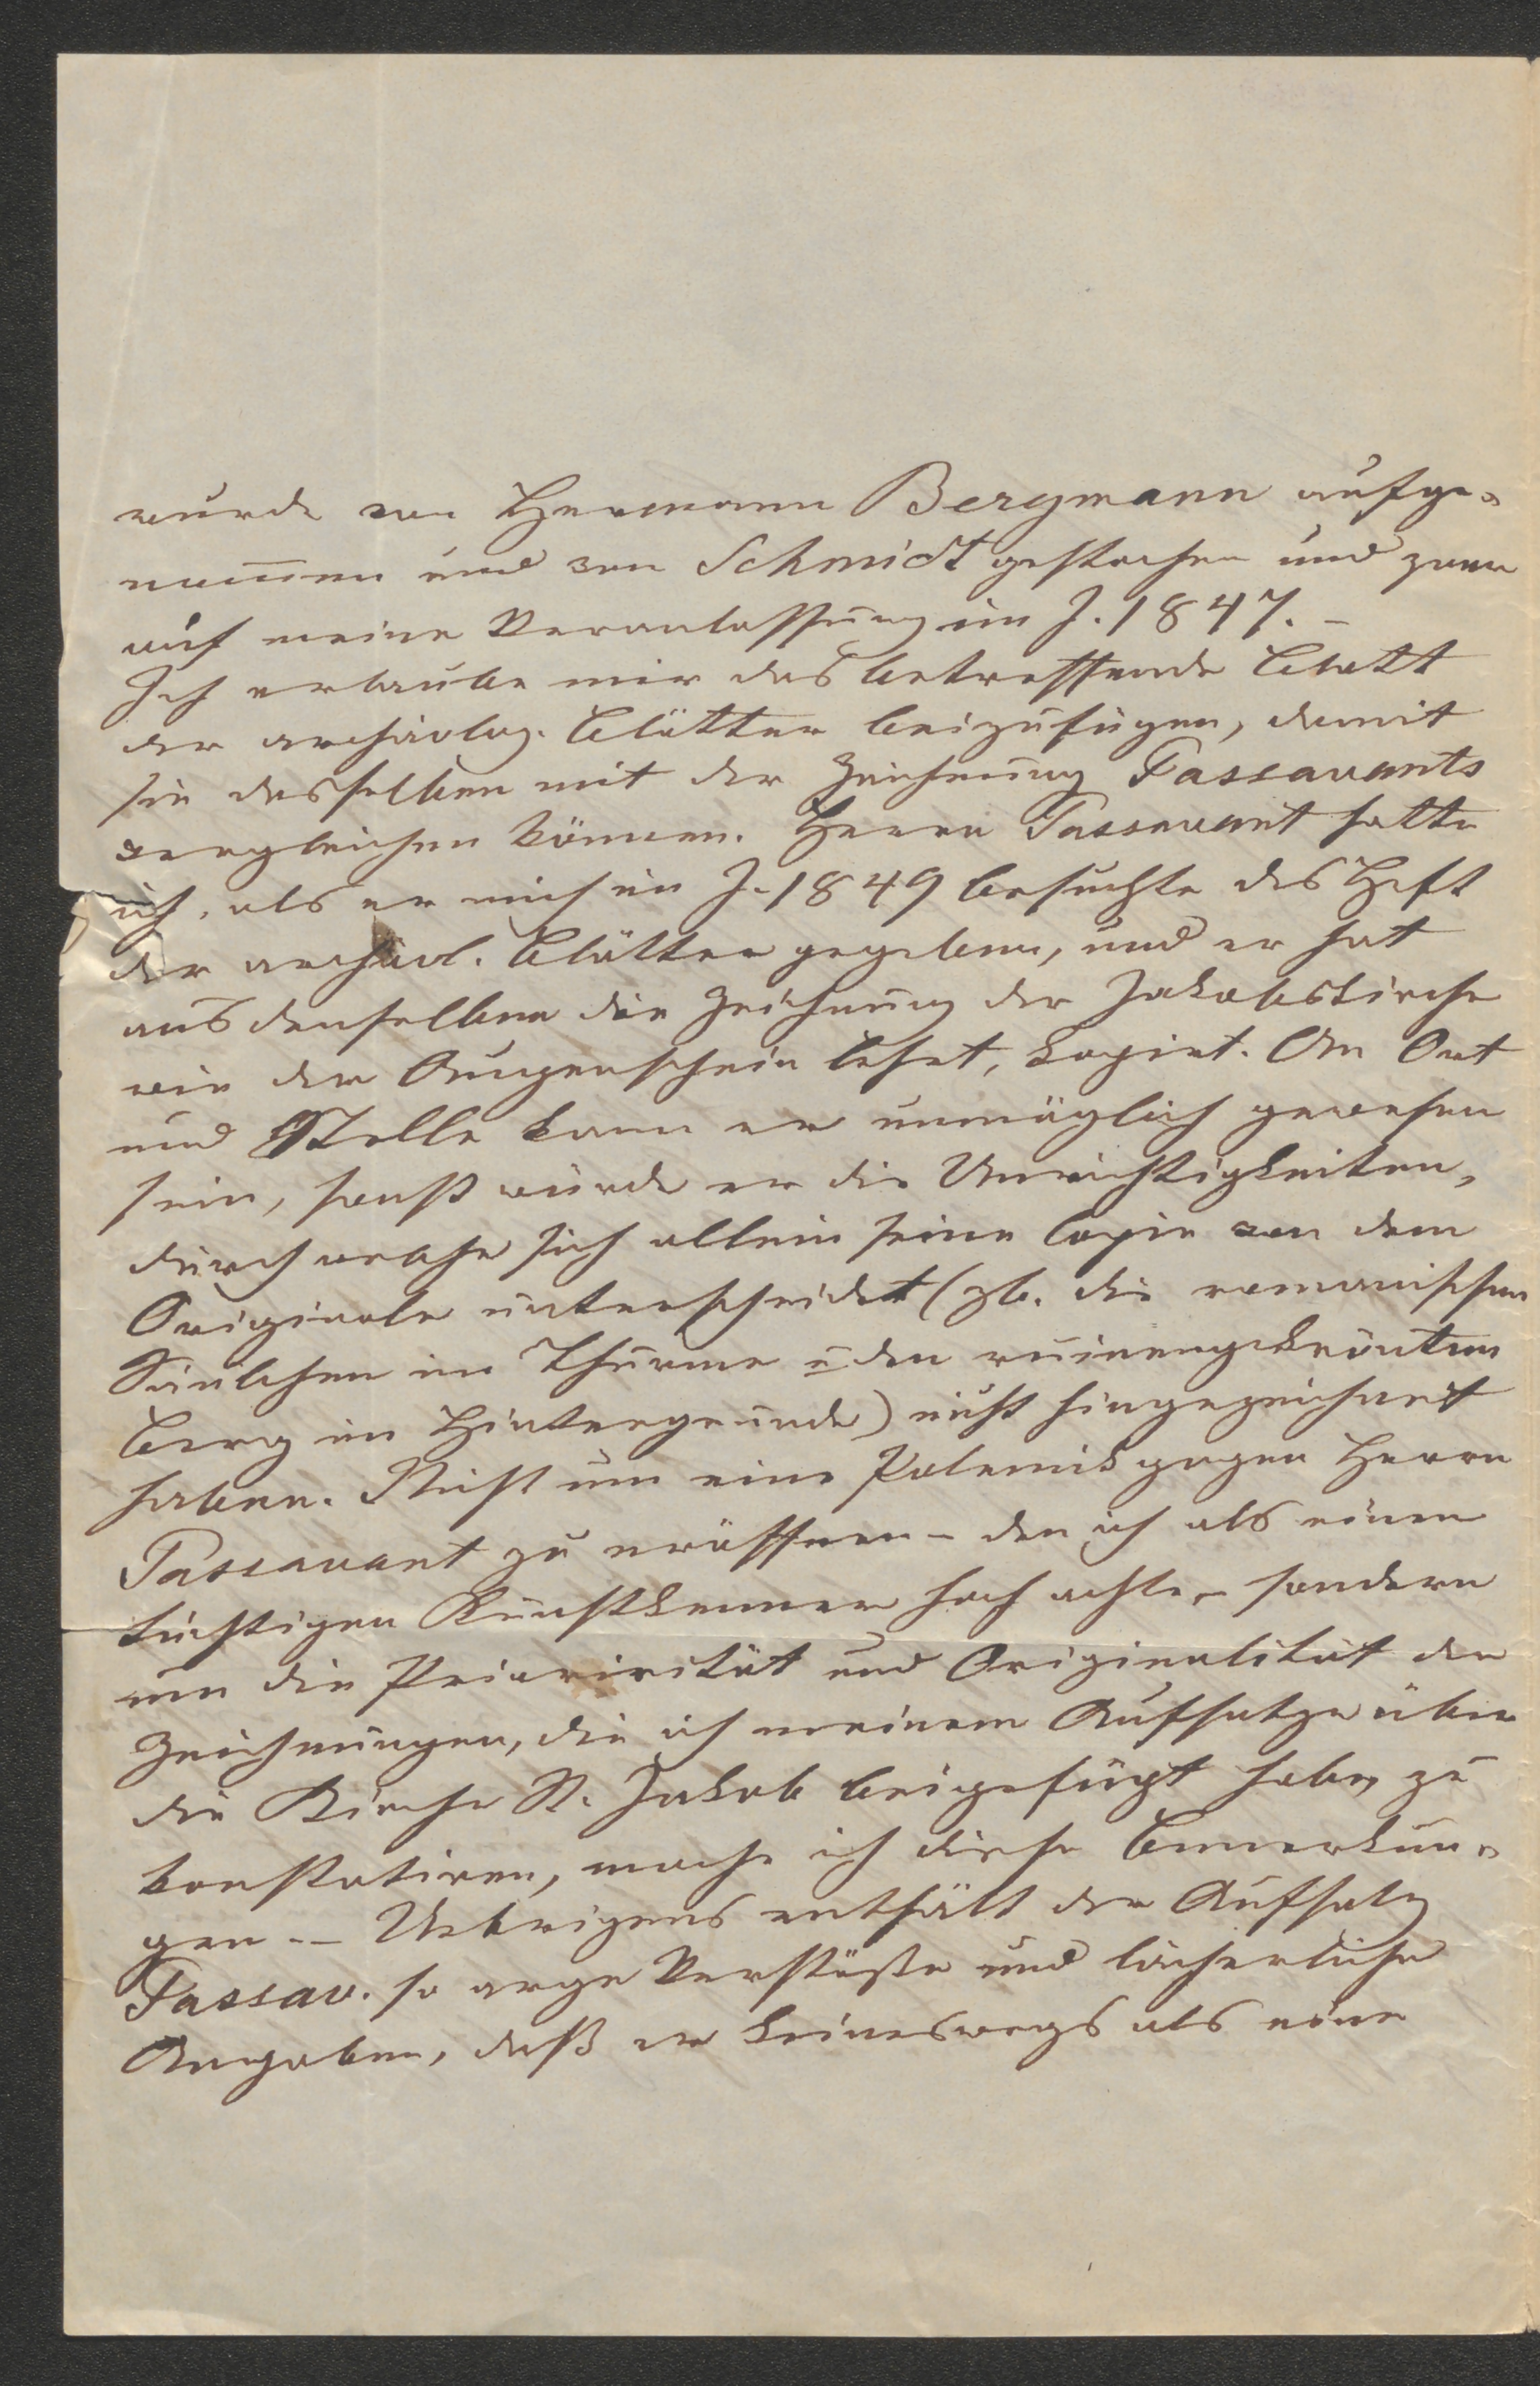 wurde von Hermann Bergmann aufge=
nommen und von Schmidt gestochen und zwar
auf meine Veranlassung im J. 1847. –
Ich erlaube mir das betreffende Blatt
der archäolog. Blätter beizufügen, damit
sie dasselben mit der Zeichnung Passavants
vergleichen können. Herrn Passavant hatte
ich, als er mich im J. 1849 besuchte das Heft
der archäol. Blätter gegeben, und er hat
aus denselben die Zeichnung der Jakobskirche
wie der Augenschein lehrt, kopirt. An Ort
und Stelle kann er unmöglich gewesen
sein, sonst würde er die Unrichtigkeiten,
durch welche sich allein seine Copie von dem
Originale unterscheidet (zb. die romanischen
Säulchen im Thurme u den ruinengekrönten
Berg im Hintergrunde) nicht hingezeichnet
haben. Nicht um eine Polemik gegen Herrn
Passavant zu eröffnen – den ich als einen
tüchtigen Kunstkenner hoch achte, – sondern
um die Priorirität und Originalität der
Zeichnungen, die ich meinem Aufsatze über
die Kirche St. Jakob beigefügt habe, zu
konstatiren, mache ich diese Bemerkun=
gen. – Uebrigens enthält der Aufsatz
Passav. so arge Verstöße und lächerliche
Angaben, daß er keineswegs als eine